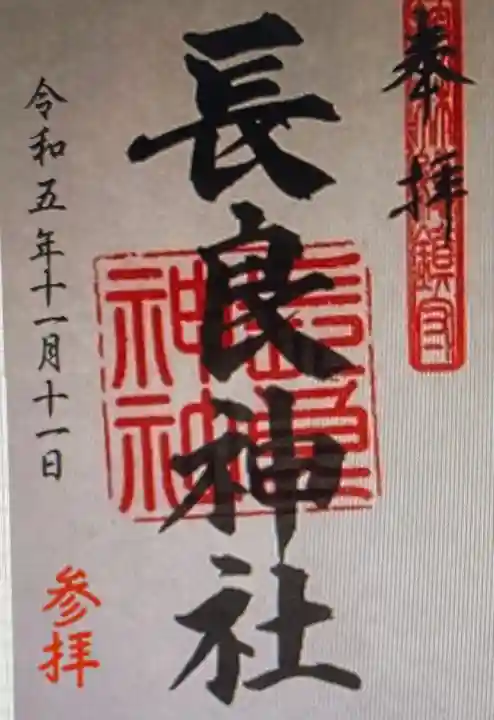 奉拝
長良神社
令和五年十一月十一日
参拝